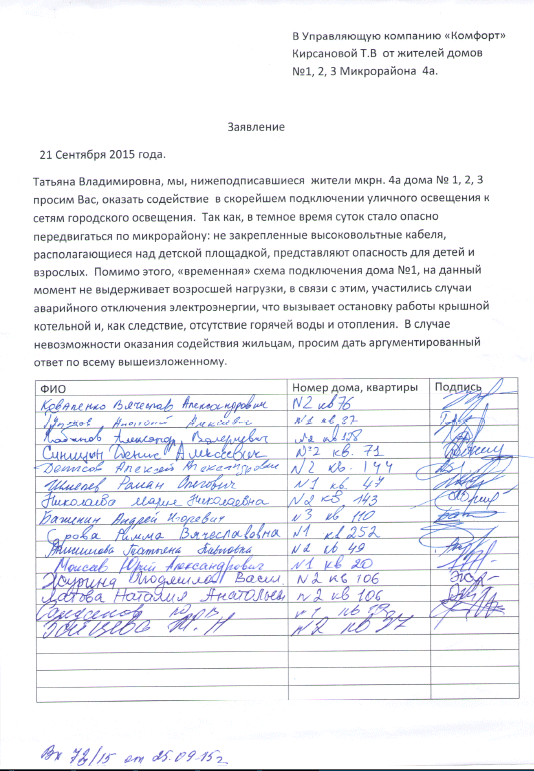 В Управляющую компанию «Комфорт»
Кирсановой Т.В  от жителей домов
№1, 2, 3 Микрорайона  4а.
Заявление
21 Сентября 2015 года.
Татьяна Владимировна, мы, нижеподписавшиеся  жители мкрн. 4а дома № 1, 2, 3
просим Вас, оказать содействие  в скорейшем подключении уличного освещения к
сетям городского освещения.  Так как, в темное время суток стало опасно
передвигаться по микрорайону: не закрепленные высоковольтные кабеля,
располагающиеся над детской площадкой, представляют опасность для детей и
взрослых.  Помимо этого, «временная» схема подключения дома №1, на данный
момент не выдерживает возросшей нагрузки, в связи с этим, участились случаи
аварийного отключения электроэнергии, что вызывает остановку работы крышной
котельной и, как следствие, отсутствие горячей воды и отопления.  В случае
невозможности оказания содействия жильцам, просим дать аргументированный
ответ по всему вышеизложенному.
ФИО Номер дома, квартиры Подпись
Коваленко Вячеслав Александрович N2 кв 76
N1 кв 37
Александр Валерьевич N2 кв 138
Синицын Денис Алексеевич №2 кв. 71
Денисов Алексей Александрович N2 кв. 144
Роман Олегович N1 кв. 47
Николаева Мария Николаевна N2 кв 143
Баженин Андрей Игоревич N3 кв 110
Серова Римма Вячеславовна N1 кв 252
Татьяна Павловна N2 кв 49
Моисав Юрий Александрович N1 кв 20
Людмила Васил. N2 кв 106
Наталия Анатольев N2 кв 106
Зайцева N2 кв 37
Вх 72/15 от 25.09.15г